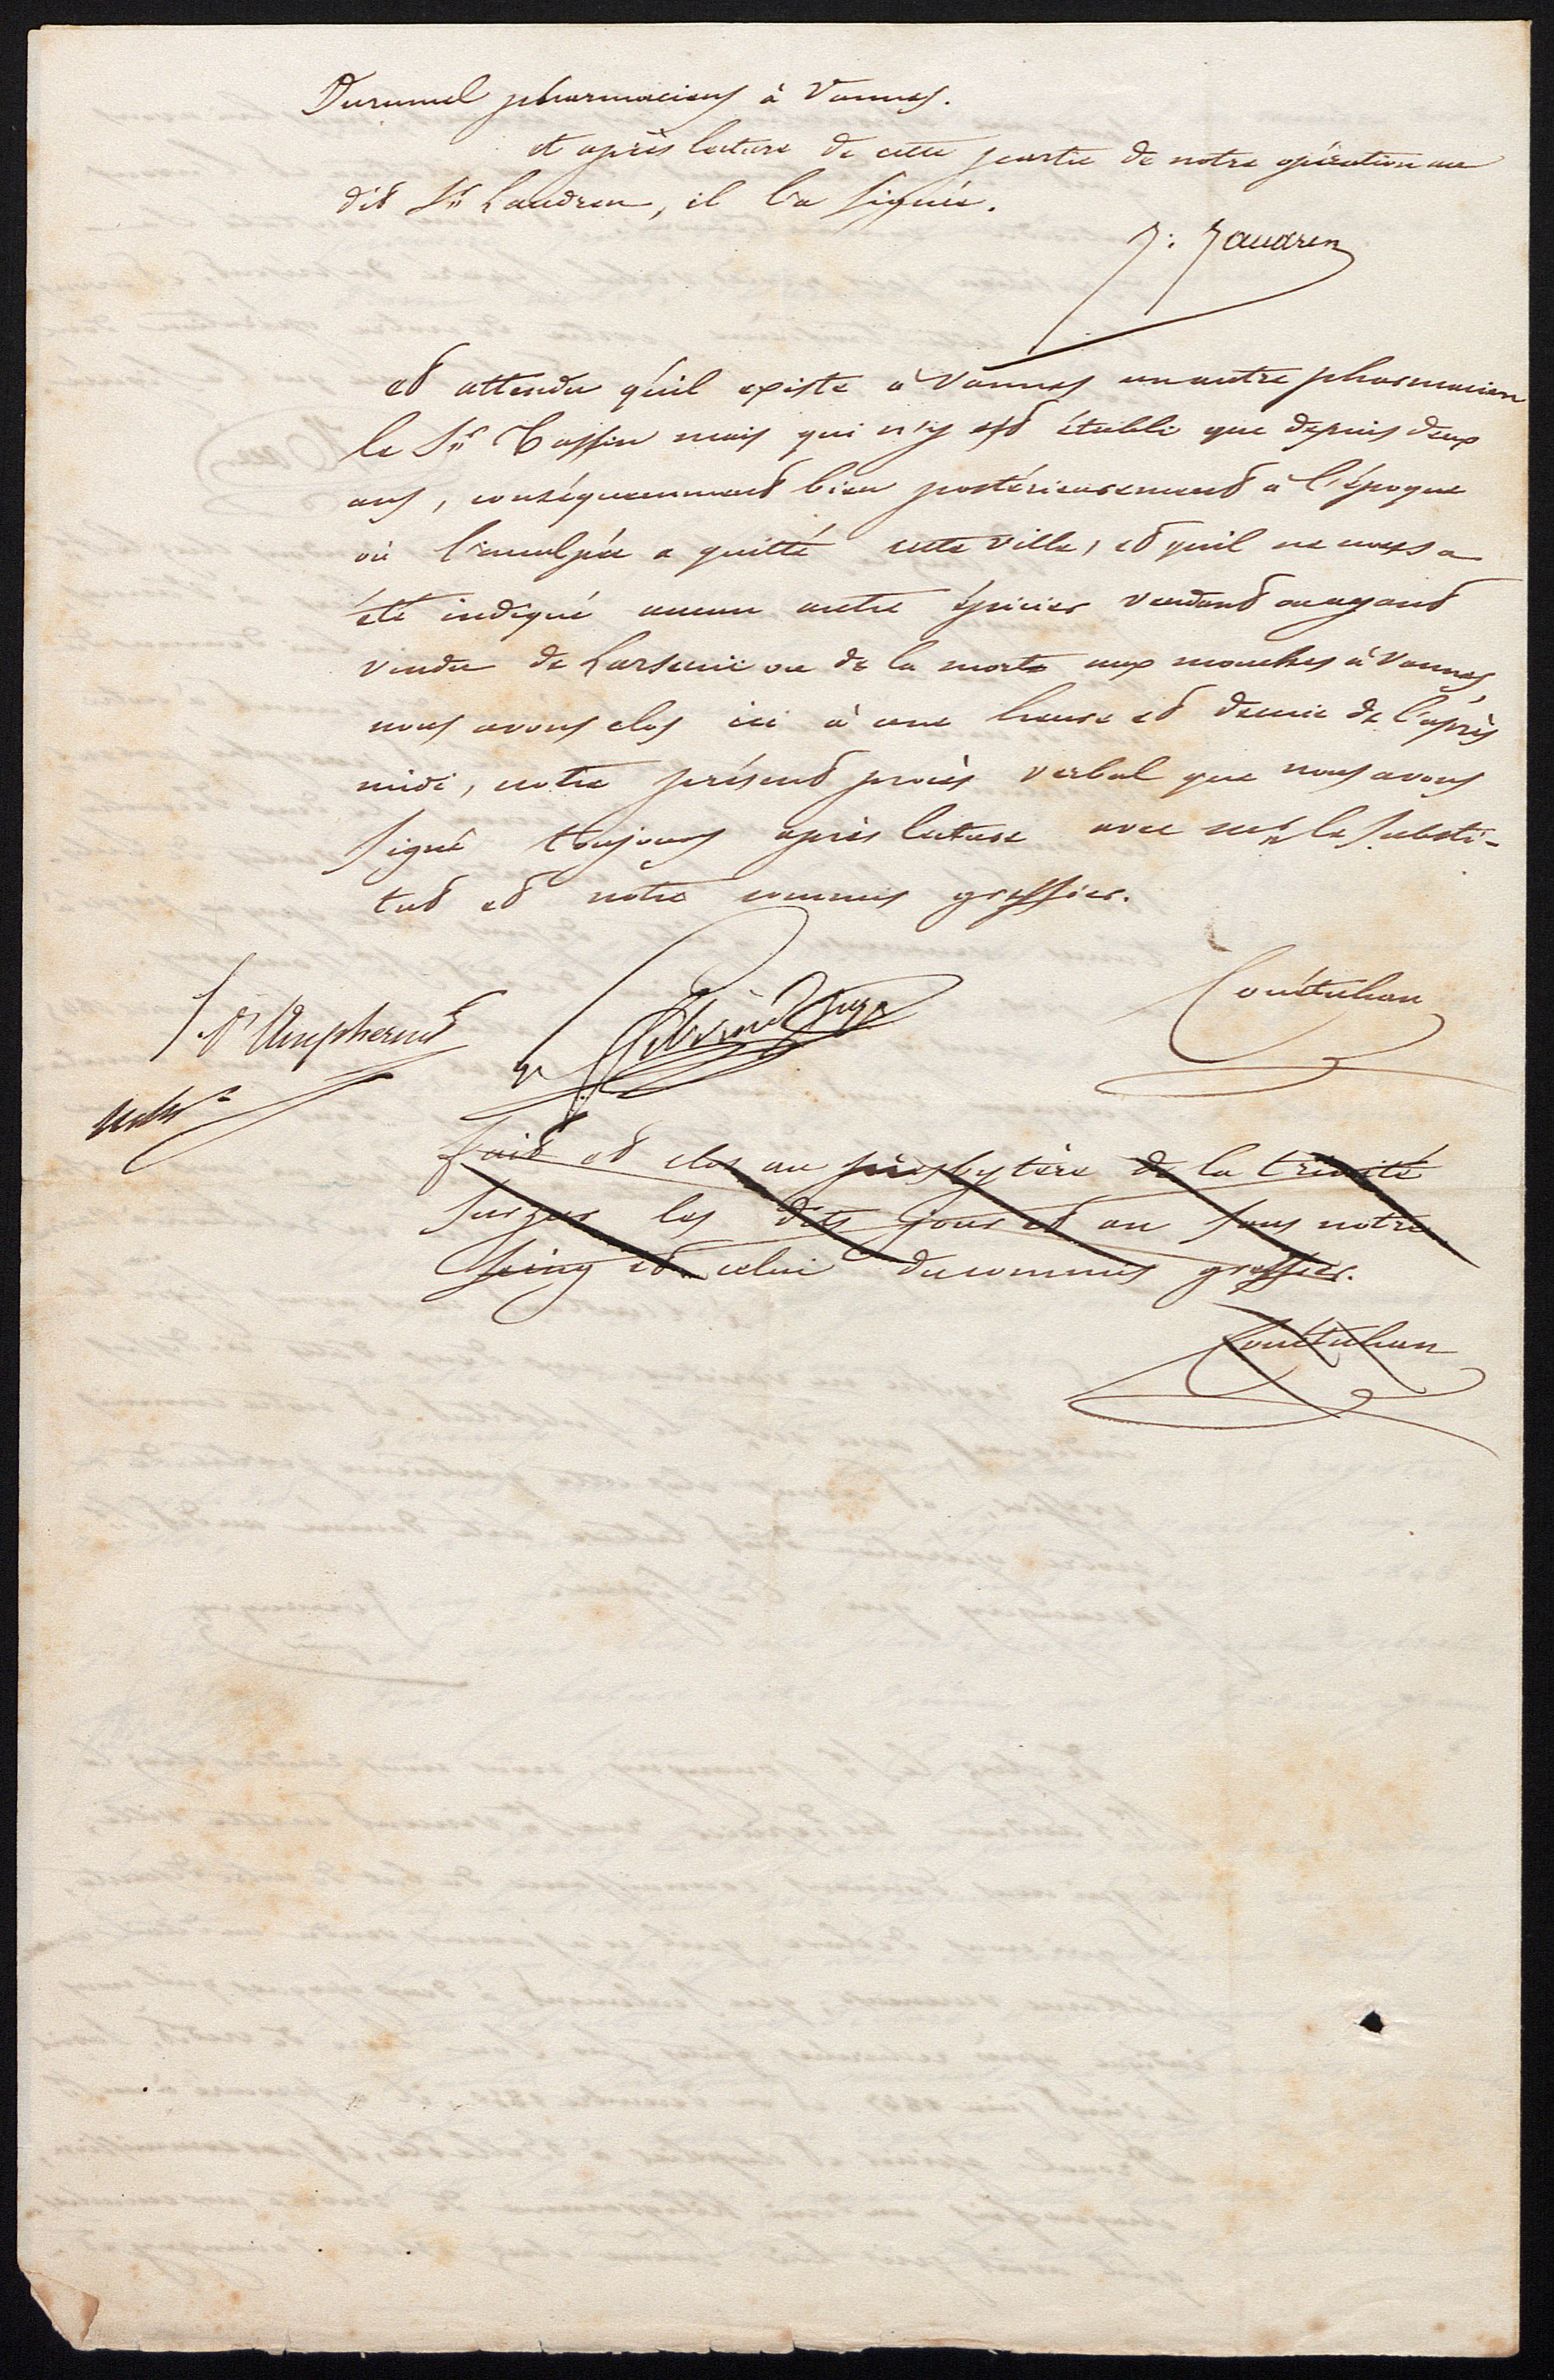 Durumel pharmaciens à Vannes.
et après lecture de cette partie de notre opération au
dit Sr Laudren, il l'a signée.
J: Jaudren
et attendu qu'il existe à Vannes un autre pharmacien
le Sr Taffin mais qui n'y est établi que depuis deux
ans, conséquemment bien postérieurement à l'époque
où l'inculpée a quitté cette ville, et qu'il ne nous a
été indiqué aucun autre épicier vendant ou ayant
vendu de l'arsenic ou de la morte aux mouches à Vannes,
nous avons clos ici à une heure et demie de l'après
midi, notre présent procès verbal que nous avons
signé toujours après lecture avec mr le substi-
tut et notre commis greffier.
Couëtuhan
fait et clos au presbytère de la trinité
surzur les dits jour et an sous notre
seing et celui du commis greffier.
Couëtuhan